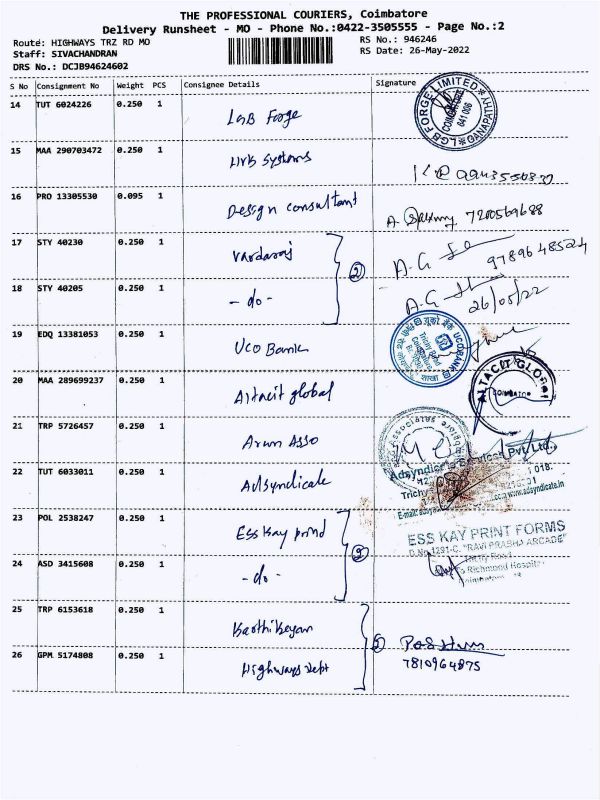 THE PROFESSIONAL COURIERS, Coimbatore
Delivery Runsheet - MO - Phone No.:0422-3505555 - Page No.:2
Route: HIGHWAYS TRZ RD MO
RS No.: 946246
Staff: SIVACHANDRAN
RS Date: 26-May-2022
DRS No.: DCJB94624602
S No Consignment No Weight PCS Consignee Details Signature
14 TUT 6024226 0.250 1 LGB Forge
LGB FORGE LIMITED
COIMBATORE
641 006
15 MAA 290703472 0.250 1 HRB Systems
16 PRO 13305530 0.095 1 Design consultant
7200569688
17 STY 40230 0.250 1 Vardaraj
A.G
9789648524
2
18 STY 40205 0.250 1 - do -
A.G
26/05/22
19 EDQ 13381053 0.250 1 UCO Bank
UCO BANK
Trichy Road
Coimbatore
शाखा
20 MAA 289699237 0.250 1 Altacit global
ALTACIT GLOBAL
COIMBATORE
21 TRP 5726457 0.250 1 Arun Asso
Associates
22 TUT 6033011 0.250 1 Adsyndicate
Adsyndicate Services Pvt. Ltd.,
Trichy
018.
www.adsyndicate.in
23 POL 2538247 0.250 1 Ess Kay print
ESS KAY PRINT FORMS
D.No.1291-C, "RAVI PRABHA ARCADE"
Trichy Road
Richmond Hospital
2
24 ASD 3415608 0.250 1 - do -
25 TRP 6153618 0.250 1 Karthikeyan
26 GPM 5174808 0.250 1 Highways Dept
7810964875